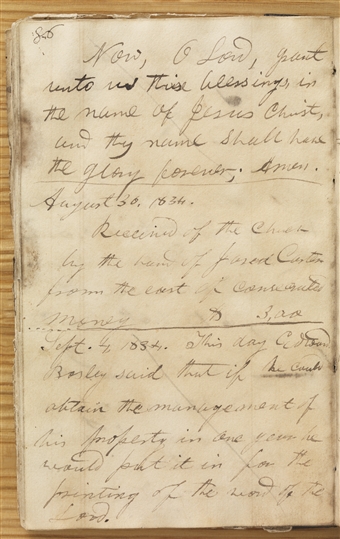 86
Now, O Lord, grant
unto us this blessings, in
the name of Jesus Christ,
and thy name shall have
the glory forever; Amen.
August 30, 1834.
Received of the Church
by the hand of Jared Carter
from the east of consecrated
money $ 3,00
Sept. 4, 1834. This day Edmond
Bosley said that if he could
obtain the management of
his property in one year he
would put it in for the
printing of the word of the
Lord.